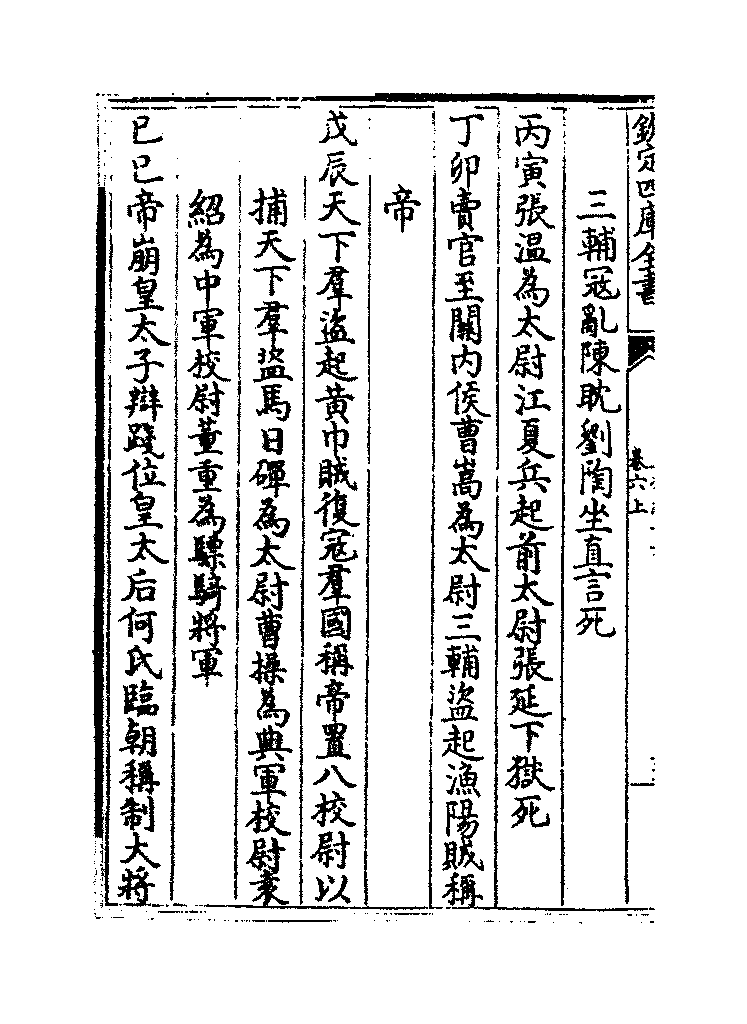 欽定四庫全書
卷六上
三輔冦亂陳耽劉陶坐直言死
丙寅張溫為太尉江夏兵起前太尉張延下獄死
丁卯賣官至關内侯曹嵩為太尉三輔盜起漁陽賊稱
帝
戊辰天下羣盜起黄巾賊復冦羣國稱帝置八校尉以
捕天下羣盜馬日磾為太尉曹操為典軍校尉袁
紹為中軍校尉董重為驃騎將軍
已已帝崩皇太子辯踐位皇太后何氏臨朝稱制大將